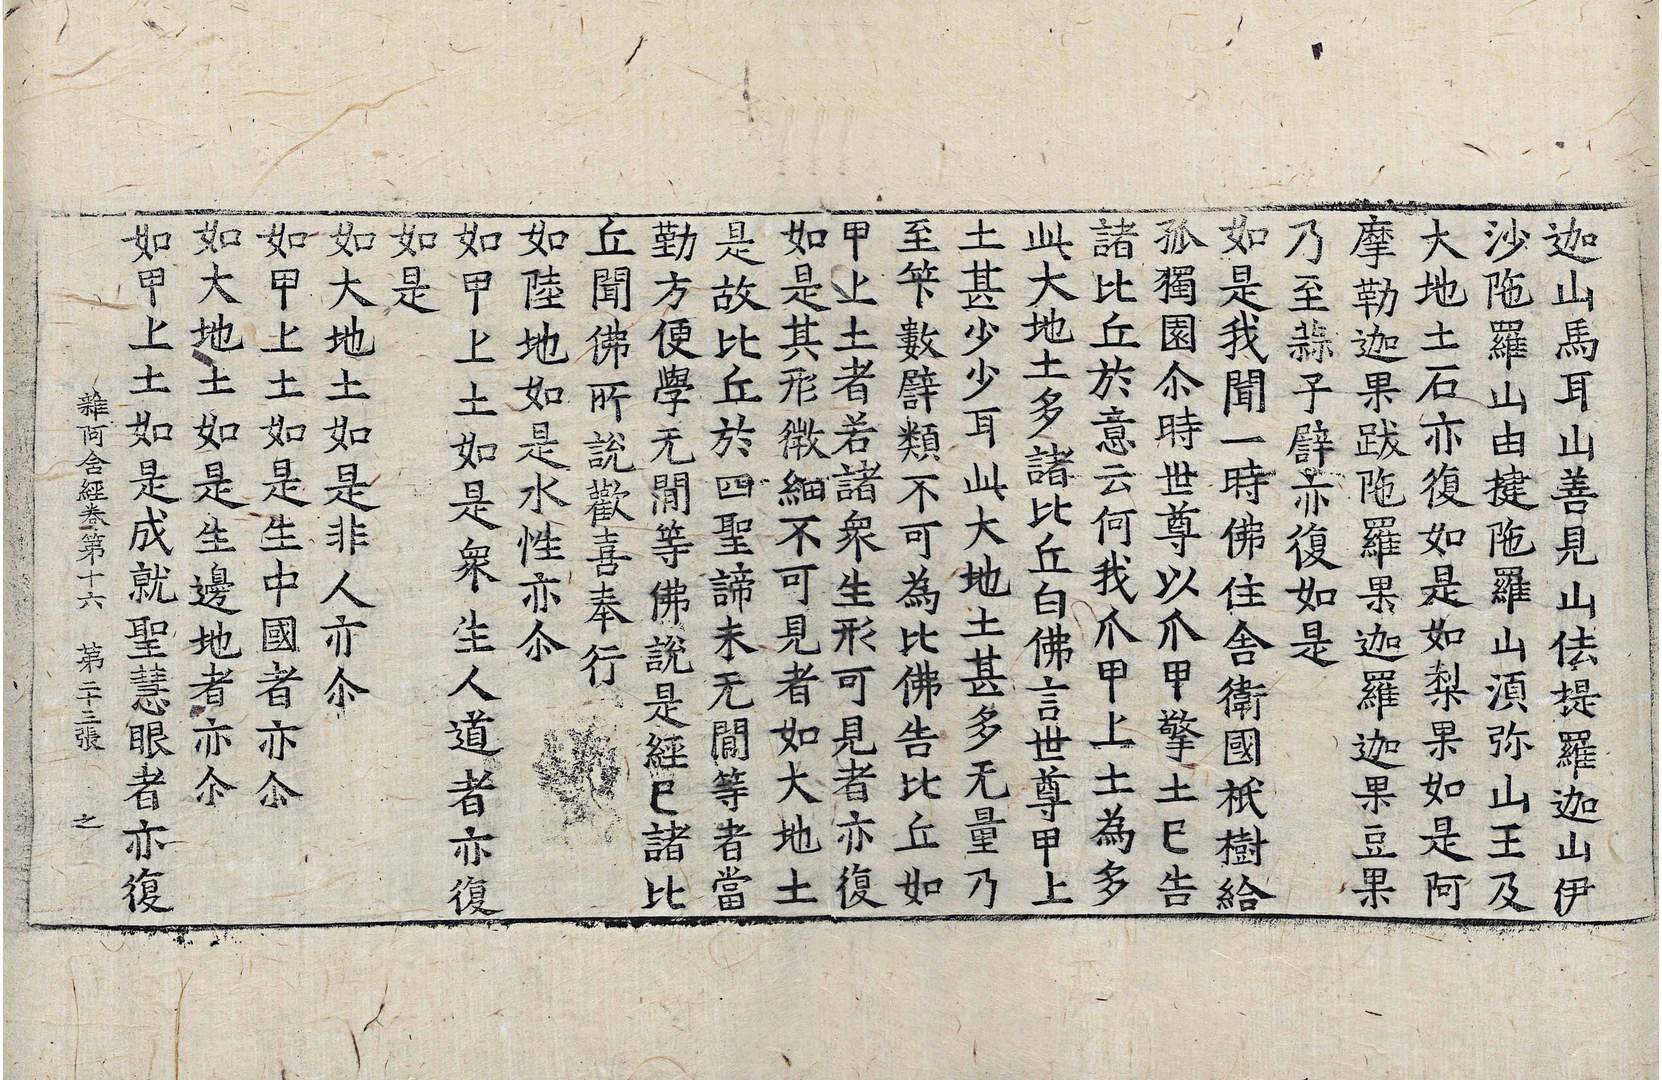 迦山馬耳山善見山佉提羅迦山伊
沙陁羅山由揵陁羅山湏弥山王及
大地土石亦復如是如梨果如是阿
摩勒迦果跋陁羅果迦羅迦果豆果
乃至蒜子譬亦復如是
如是我聞一時佛住舍衛國祇樹給
孤獨園尒時世尊以爪甲擎土巳告
諸比丘於意云何我爪甲上土為多
此大地土多諸比丘白佛言世尊甲上
土甚少少耳此大地土甚多无量乃
至筭數譬類不可為比佛告比丘如
甲上土者若諸衆生形可見者亦復
如是其形微細不可見者如大地土
是故比丘於四聖諦未无閒等者當
勤方便學无閒等佛說是經巳諸比
丘聞佛所說歡喜奉行
如陸地如是水性亦尒
如甲上土如是衆生人道者亦復
如是
如大地土如是非人亦尒
如甲上土如是生中國者亦尒
如大地土如是生邊地者亦尒
如甲上土如是成就聖慧眼者亦復
雜阿含經卷第十六 第二十三張 之